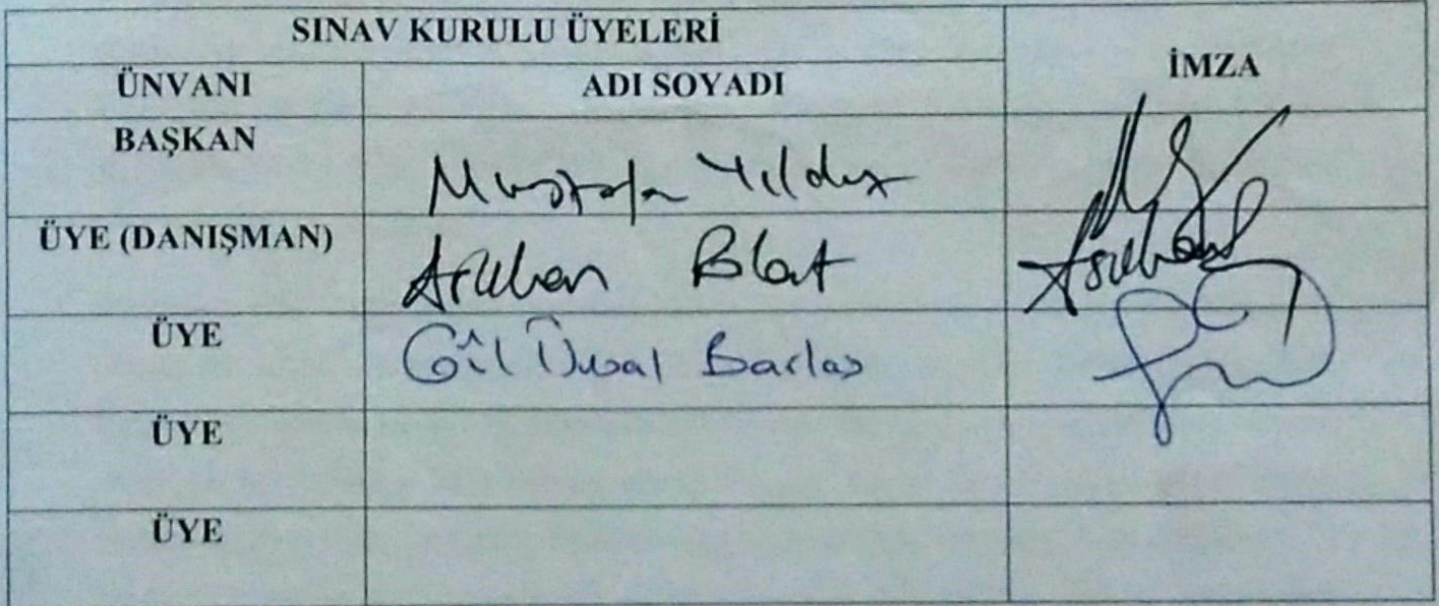 SINAV KURULU ÜYELERİ
İMZA
ÜNVANI ADI SOYADI
BAŞKAN Mustafa Yıldız
ÜYE (DANIŞMAN)
ÜYE Gül Ünsal Barlas
ÜYE
ÜYE